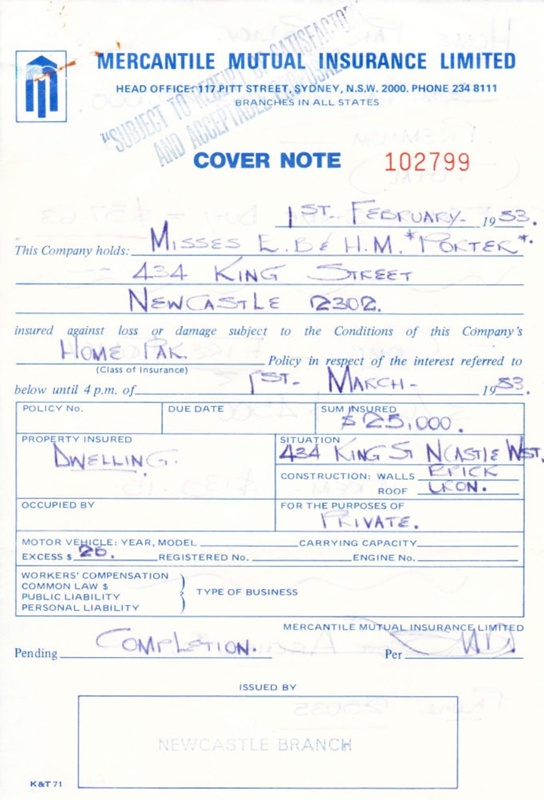 MERCANTILE MUTUAL INSURANCE LIMITED
HEAD OFFICE: 117 PITT STREET, SYDNEY, N.S.W. 2000. PHONE 234 8111
BRANCHES IN ALL STATES
"SUBJECT TO RECEIPT OF SATISFACTORY
AND ACCEPTABLE PROPOSAL"
COVER NOTE 102799
1ST FEBRUARY 1983.
This Company holds: MISSES E.B & H.M. "PORTER".
434 KING STREET
NEWCASTLE 2302.
insured against loss or damage subject to the Conditions of this Company's
HOME PAK. Policy in respect of the interest referred to
(Class of Insurance)
below until 4 p.m. of 1ST MARCH 1983.
POLICY No. DUE DATE SUM INSURED
$25,000.
PROPERTY INSURED SITUATION
DWELLING. 434 KING ST NCASTLE WST.
CONSTRUCTION: WALLS BRICK
ROOF
OCCUPIED BY FOR THE PURPOSES OF
PRIVATE.
MOTOR VEHICLE: YEAR, MODEL CARRYING CAPACITY
EXCESS $ REGISTERED No. ENGINE No.
WORKERS' COMPENSATION
COMMON LAW $
PUBLIC LIABILITY
PERSONAL LIABILITY
TYPE OF BUSINESS
MERCANTILE MUTUAL INSURANCE LIMITED
Pending COMPLETION. Per
ISSUED BY
NEWCASTLE BRANCH
K&T 71